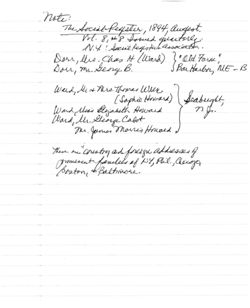 Note:
The Social Register, 1894, August
Vol. 8, #8 Issued quarterly,
N.Y.: Social Register Association.
Dorr, Mrs. Chas H (Ward) } "Old Farm"
Dorr, Mr. George B. Bar Harbor, ME-B
Ward, Mr & Mrs Thomas Wren
(Sophia Howard)
Ward, Miss Elizabeth Howard } Seabright,
Ward, Mr. George Cabot N.J.
Mr. James Morris Howard
"country and foreign addresses of
prominent families of NY, Phil., Chicago,
Boston, & Baltimore.